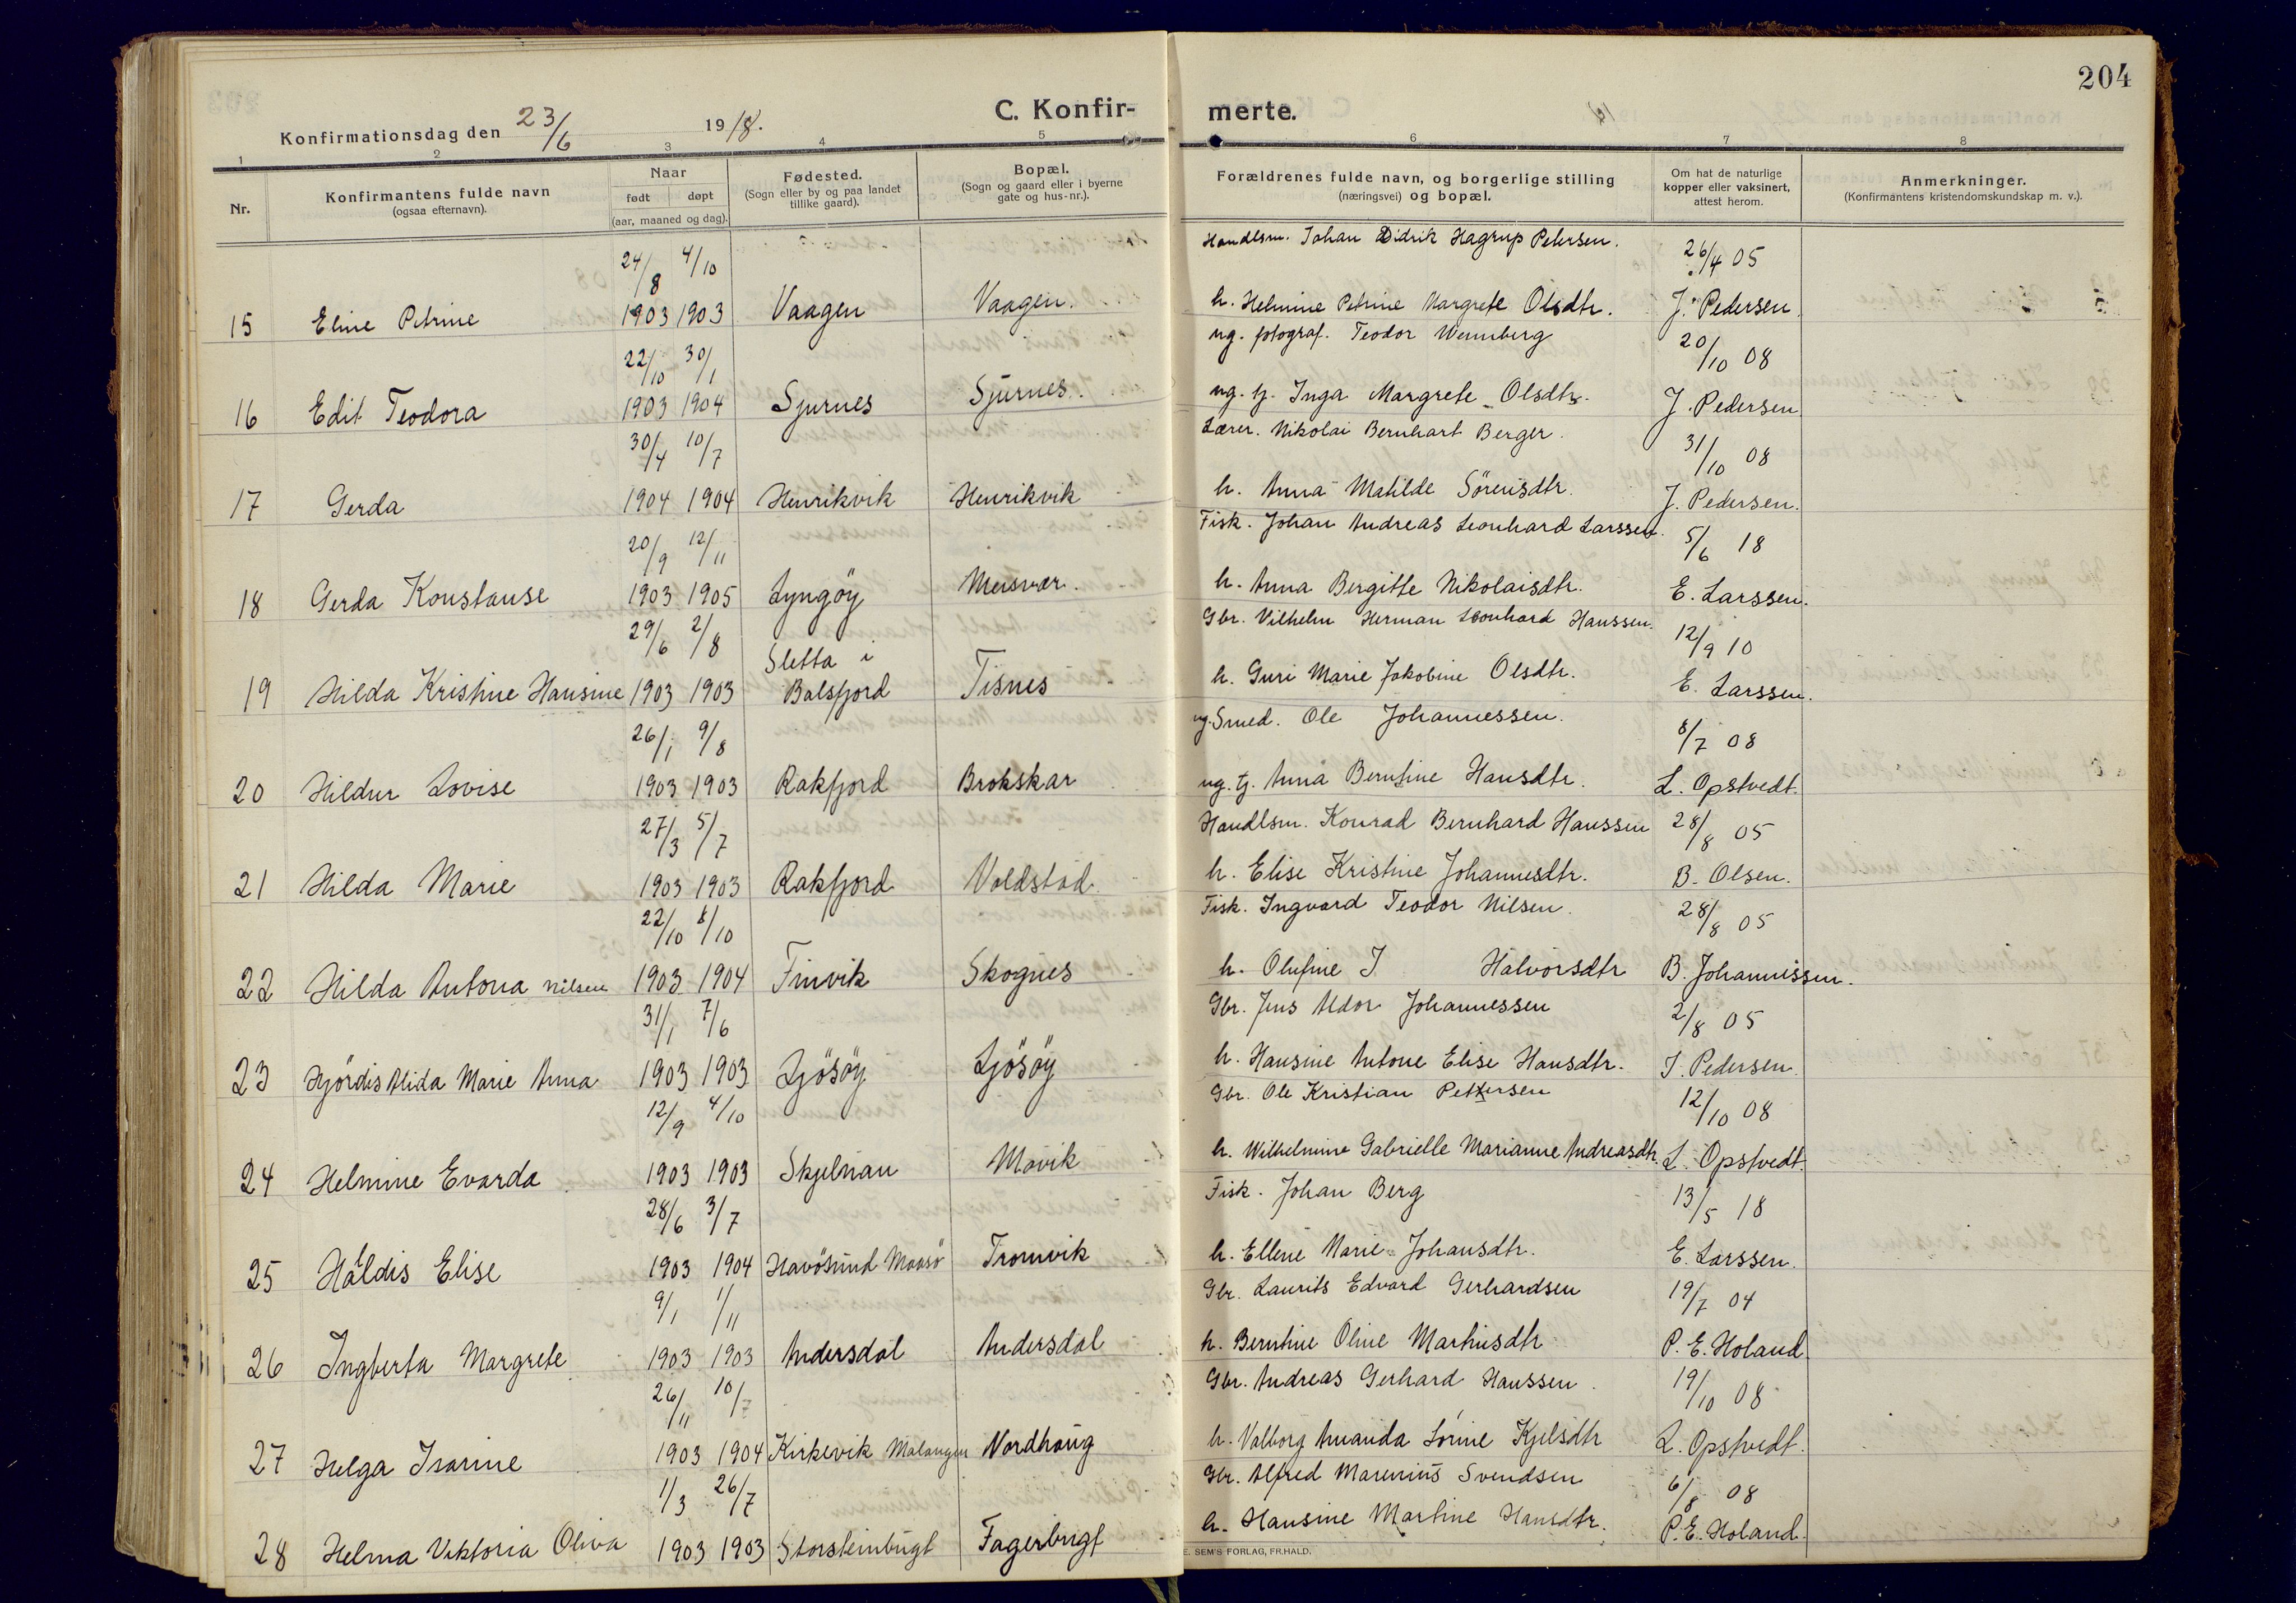 204
Konfirmationsdag den 23/6 1918. C. Konfirmerte.
1 2 3 4 5 6 7 8
Nr. Konfirmantens fulde navn (ogsaa efternavn). Naar født døpt (aar, maaned og dag). Fødested. (Sogn eller by og paa landet tillike gaard). Bopæl. (Sogn og gaard eller i byerne gate og hus-nr.). Forældrenes fulde navn, og borgerlige stilling (næringsvei) og bopæl. Om hat de naturlige kopper eller vaksinert, attest herom. Anmerkninger. (Konfirmantens kristendomskundskap m. v.).
24/8 4/10 Handlsm. Johan Didrik Hagrup Petersen. 26/4 05
15 Eline Petrine 1903 1903 Vaagen Vaagen. h. Helmine Petrine Margrete Olsdtr. J. Pedersen.
22/10 30/1 ug. fotograf. Teodor Wennberg 20/10 08
16 Edit Teodora 1903 1904 Sjurnes Sjurnes. ug. tj. Inga Margrete Olsdtr. J. Pedersen
30/4 10/7 Lærer. Nikolai Bernhart Berger. 31/10 08
17 Gerda 1904 1904 Henrikvik Henrikvik h. Anna Matilde Sörensdtr. J. Pedersen.
20/9 12/11 Fisk. Johan Andreas Leonhard Larssen. 5/6 18
18 Gerda Konstanse 1903 1905 Lyngöy Meisvær. h. Anna Bergitte Nikolaisdtr. E. Larssen.
29/6 2/8 Gbr. Vilhelm Herman Leonhard Hanssen. 12/9 10
19 Hilda Kristine Hansine 1903 1903 Sletta i Balsfjord Tisnes h. Guri Marie Jakobine Olsdtr. E. Larssen.
26/1 9/8 ug. Smed. Ole Johannessen. 8/7 08
20 Hildur Lovise 1903 1903 Rakfjord Brokskar ug. tj. Anna Berntine Hansdtr. L. Opstvedt.
27/3 5/7 Handlsm. Konrad Bernhard Hanssen 28/8 05
21 Hilda Marie 1903 1903 Rakfjord Voldstad h. Elise Kristine Johannesdtr. B. Olsen.
22/10 8/10 Fisk. Ingvard Teodor Nilsen. 28/8 05
22 Hilda Antona Nilsen 1903 1904 Finvik Skognes h. Olufine J. Halvorsdtr B. Johannissen.
31/1 7/6 Gbr. Jens Aldor Johannessen 2/8 05
23 Hjördis Alida Marie Anna 1903 1903 Ljösöy Ljösöy h. Hansine Antone Elise Hansdtr. J. Pedersen.
12/9 4/10 Gbr. Ole Kristian Pettersen 12/10 08
24 Helmine Evarda 1903 1903 Skjelnan Mavik h. Wilhelmine Gabrielle Marianne Andreasdtr. L. Opstvedt.
28/6 3/7 Fisk. Johan Berg 13/5 18
25 Haldis Elise 1903 1904 Havösund Maasö Tromvik h. Ellene Marie Johansdtr. E. Larssen.
9/1 1/11 Gbr. Laurits Edvard Gerhardsen 19/7 04
26 Ingberta Margrete 1903 1903 Andersdal Andersdal h. Berntine Oline Martinsdtr P. E. Holand.
26/11 10/7 Gbr. Andreas Gerhard Hanssen. 19/10 08
27 Helga Isarine 1903 1904 Kirkevik Malangen Nordhaug h. Valborg Amanda Lorine Kjelsdtr L. Opstvedt.
1/3 26/7 Gbr. Alfred Marenius Svendsen 6/8 08
28 Helma Viktoria Oliva 1903 1903 Storsteinbugt Fagerbugt h. Hansine Martine Hansdtr. P. E. Holand.
E. SEM'S FORLAG, FR.HALD.